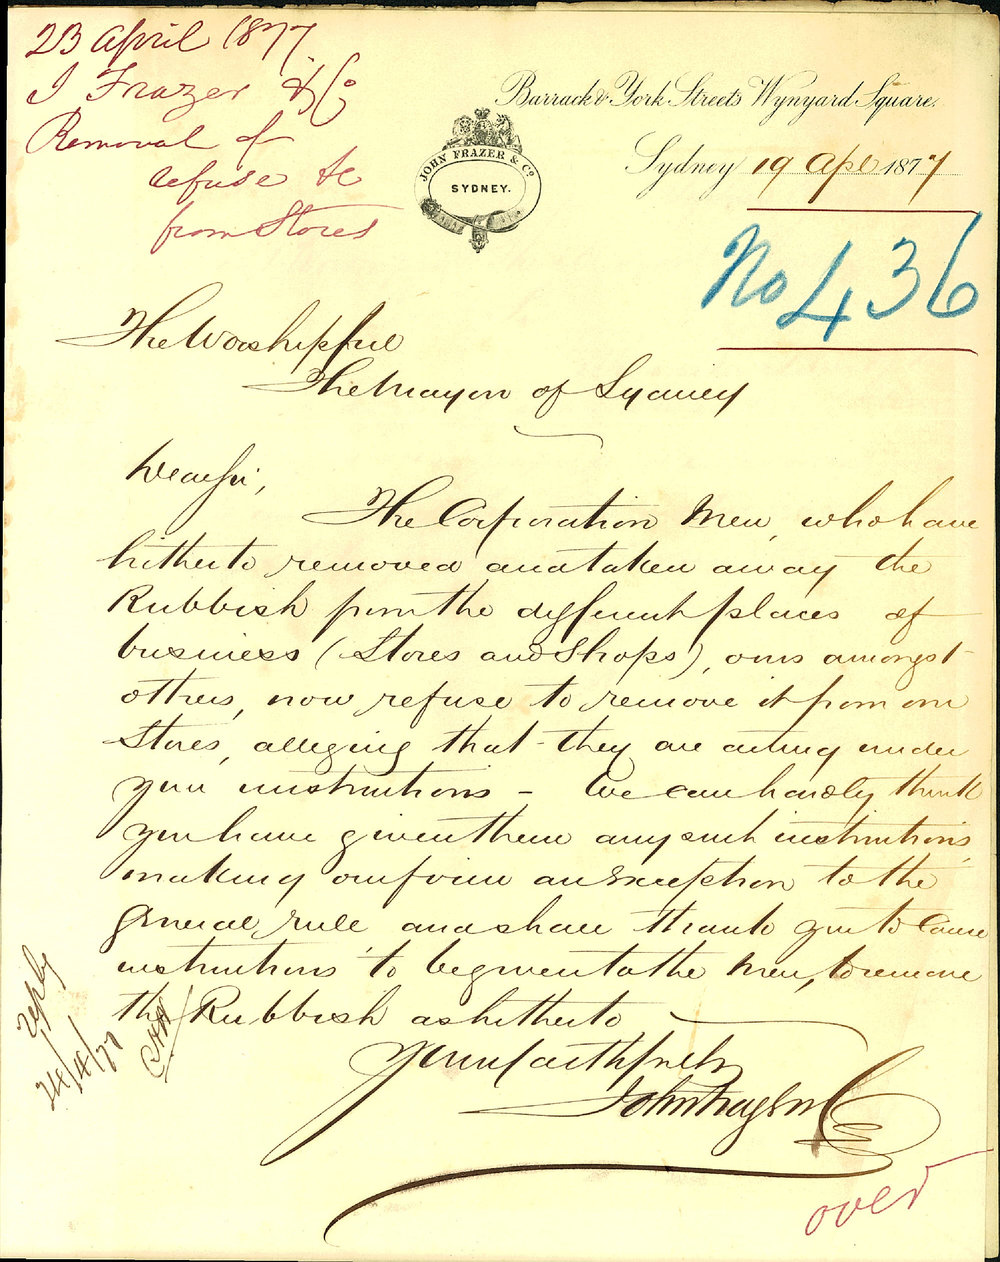 23 April 1877
J Frazer & Co
Removal of
refuse &c
from Stores
Barrack & York Streets Wynyard Square.
Sydney 19 Apl 1877
JOHN FRAZER & Co
SYDNEY.
No 436
The Worshipful
The Mayor of Sydney
Dear Sir,
The Corporation Men, who have
hitherto removed and taken away the
Rubbish from the different places of
business (Stores and Shops), ours amongst
others, now refuse to remove it from our
Stores, alleging that they are acting under
your instructions - We can hardly think
you have given them any such instructions,
making our firm an exception to the
general rule and shall thank you to cause
instructions to be given to the Men, to remove
the Rubbish as hitherto
Yours faithfully
John Frazer & Co
reply
24/4/77
over